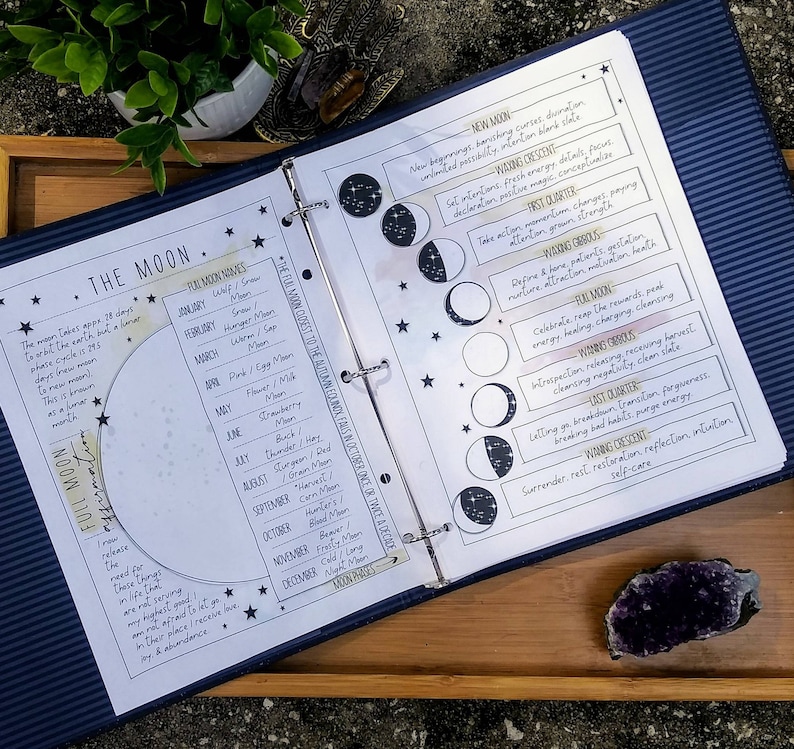 THE MOON
The moon takes appx. 28 days
to orbit the earth, but a lunar
phase cycle is 29.5
days (new moon
to new moon).
This is known
as a lunar
month.
FULL MOON
affirmation
I now
release
the
need for
those things
in life that
are not serving
my highest good. I
am not afraid to let go.
In their place I receive love,
joy, & abundance.
FULL MOON NAMES
JANUARY Wolf / Snow
Moon
FEBRUARY Snow /
Hunger Moon
MARCH Worm / Sap
Moon
APRIL Pink / Egg Moon
MAY Flower / Milk
Moon
JUNE Strawberry
Moon
JULY Buck /
thunder / Hay,
AUGUST Sturgeon / Red
/ Grain Moon
SEPTEMBER *Harvest /
Corn Moon
OCTOBER Hunter's /
Blood Moon
NOVEMBER Beaver /
Frosty Moon
DECEMBER Cold / Long
Night Moon
*THE FULL MOON CLOSEST TO THE AUTUMN EQUINOX FALLS IN OCTOBER ONCE OR TWICE A DECADE.
MOON PHASES
NEW MOON
New beginnings, banishing curses, divination,
unlimited possibility, intention blank slate
WAXING CRESCENT
Set intentions, fresh energy, details, focus,
declaration, positive magic, conceptualize.
FIRST QUARTER
Take action, momentum, changes, paying
attention, grown, strength.
WAXING GIBBOUS
Refine & hone, patients, gestation,
nurture, attraction, motivation, health.
FULL MOON
Celebrate, reap the rewards, peak
energy, healing, charging, cleansing
WANING GIBBOUS
Introspection, releasing, receiving harvest,
cleansing negativity, clean slate.
LAST QUARTER
Letting go, breakdown, transition, forgiveness,
breaking bad habits, purge energy.
WANING CRESCENT
Surrender, rest, restoration, reflection, intuition,
self-care